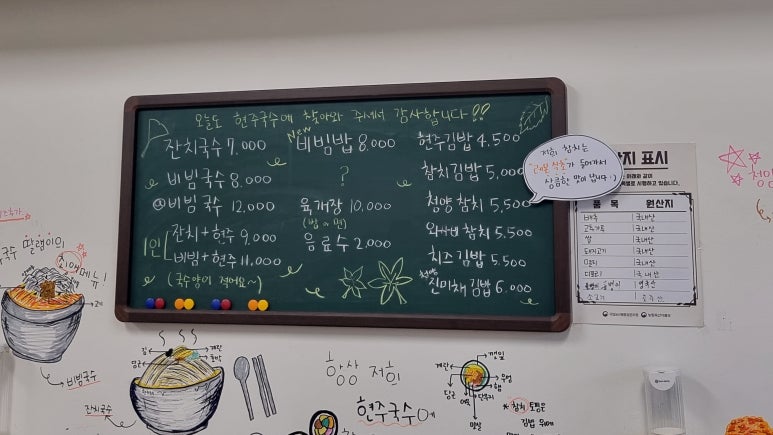 오늘도 현주국수에 찾아와 주셔서 감사합니다!!
잔치국수 7.000
비빔국수 8.000
@비빔국수 12,000
1인
잔치+현주 9.000
비빔+현주 11.000
(국수양이 적어요~)
New
비빔밥 8.000
?
육개장 10,000
(밥 or 면)
음료수 2.000
현주김밥 4.500
참치김밥 5,000
청양참치 5,500
와사비참치 5.500
치즈김밥 5.500
청양
진미채김밥 6.000
저희 참치는
"레몬식초"가 들어가서
상큼한 맛이 납니다:)
산지 표시
품 목 원산지
배추 국내산
고춧가루 국내산
쌀 국내산
돼지고기 국내산
국내산
국내산
국수 딸램이의
최애메뉴!
비빔국수
잔치국수
김
당근
계란
호박
항상 저희
현주국수에
깻잎
계란
우엉
당근
햄
단무지
맛살
*참치 토핑은
김밥 위에
청양